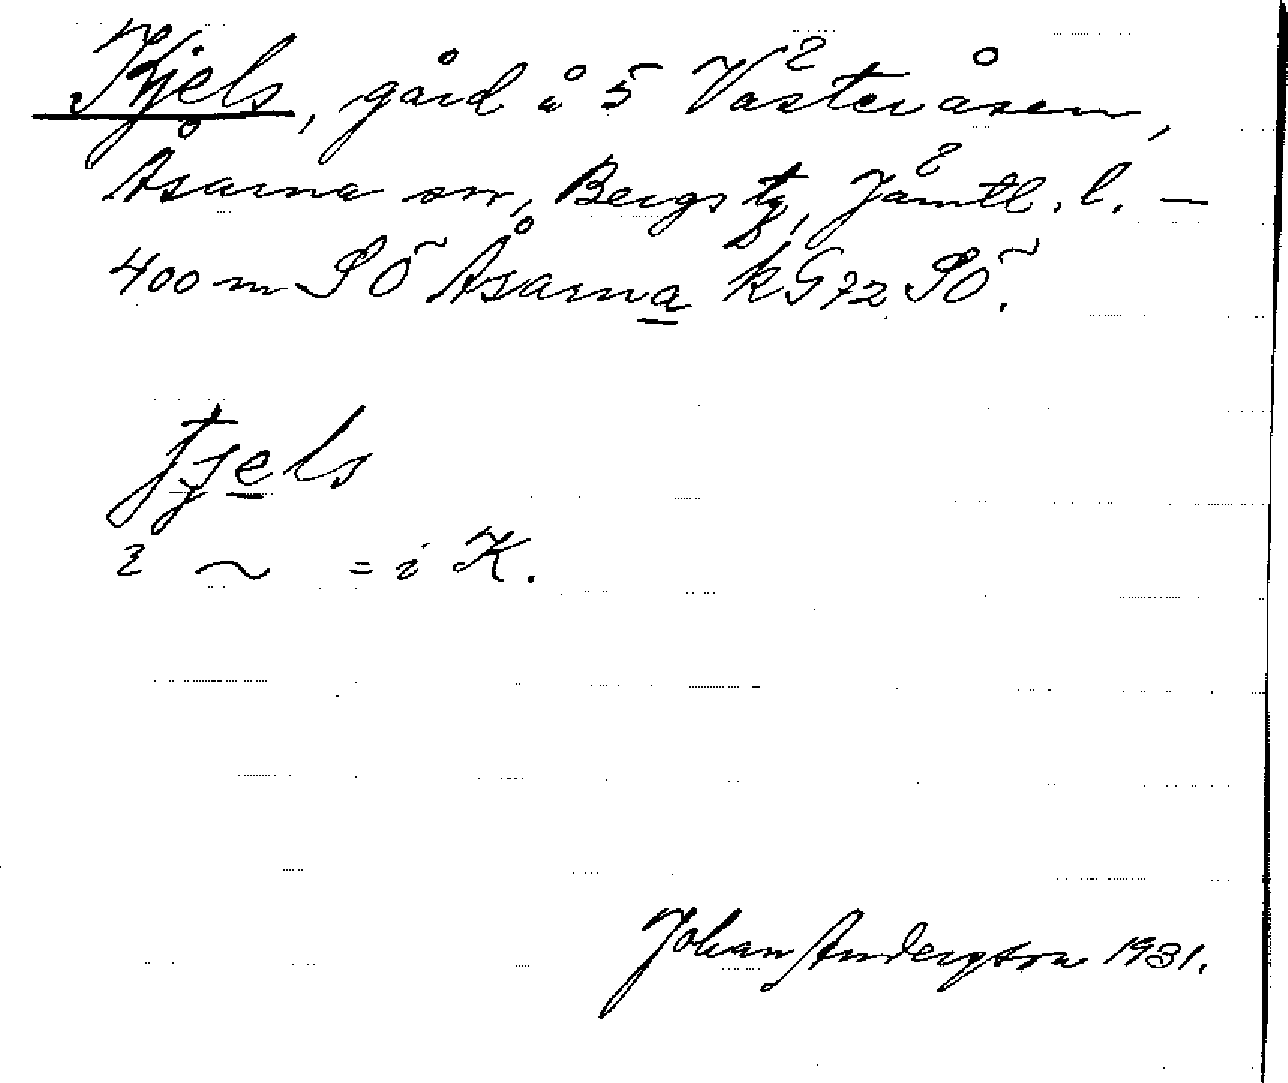 Kjels, gård å 5 Västeråsen,
Åsarna sn, Bergs tg, Jämtl. l. —
400 m SÖ Åsarna k G 72 SÖ.
tjels
2 ~ = i K.
Johan Anderson 1931.